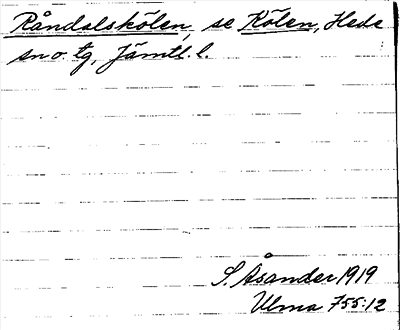 Råndalskölen, se Kölen, Hede
sn o. tg, Jämtl. l.
S. Åsander 1919
Ulma 755:12